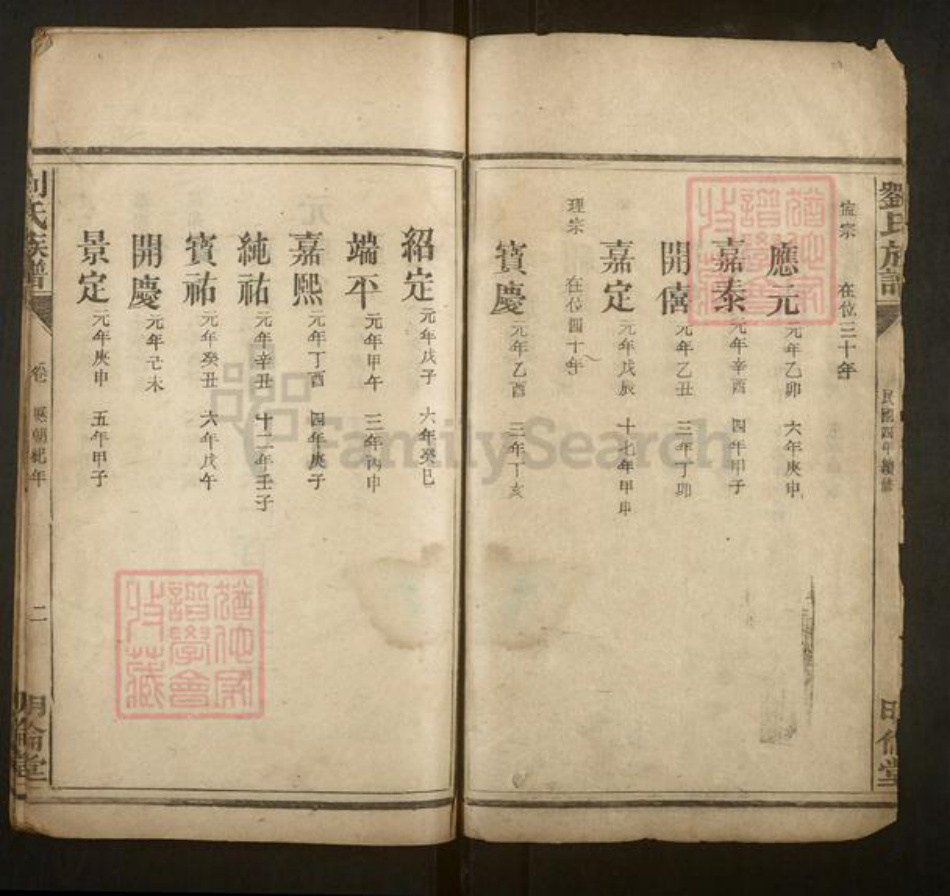 劉氏族譜
民國四年續修
明倫堂
寍宗 在位三十年
應元 元年乙卯 六年庚申
嘉泰 元年辛酉 四年甲子
開僖 元年乙丑 三年丁卯
嘉定 元年戊辰 十七年甲申
理宗 在位四十年
寳慶 元年乙酉 三年丁亥
紹定 元年戊子 六年癸巳
端平 元年甲午 三年丙申
嘉熙 元年丁酉 四年庚子
純祐 元年辛丑 十二年壬子
寳祐 元年癸丑 六年戊午
開慶 元年己未
景定 元年庚申 五年甲子
劉氏族譜
卷 歷朝紀年
二
明倫堂
猶他家譜學會收藏
猶他家譜學會收藏
FamilySearch